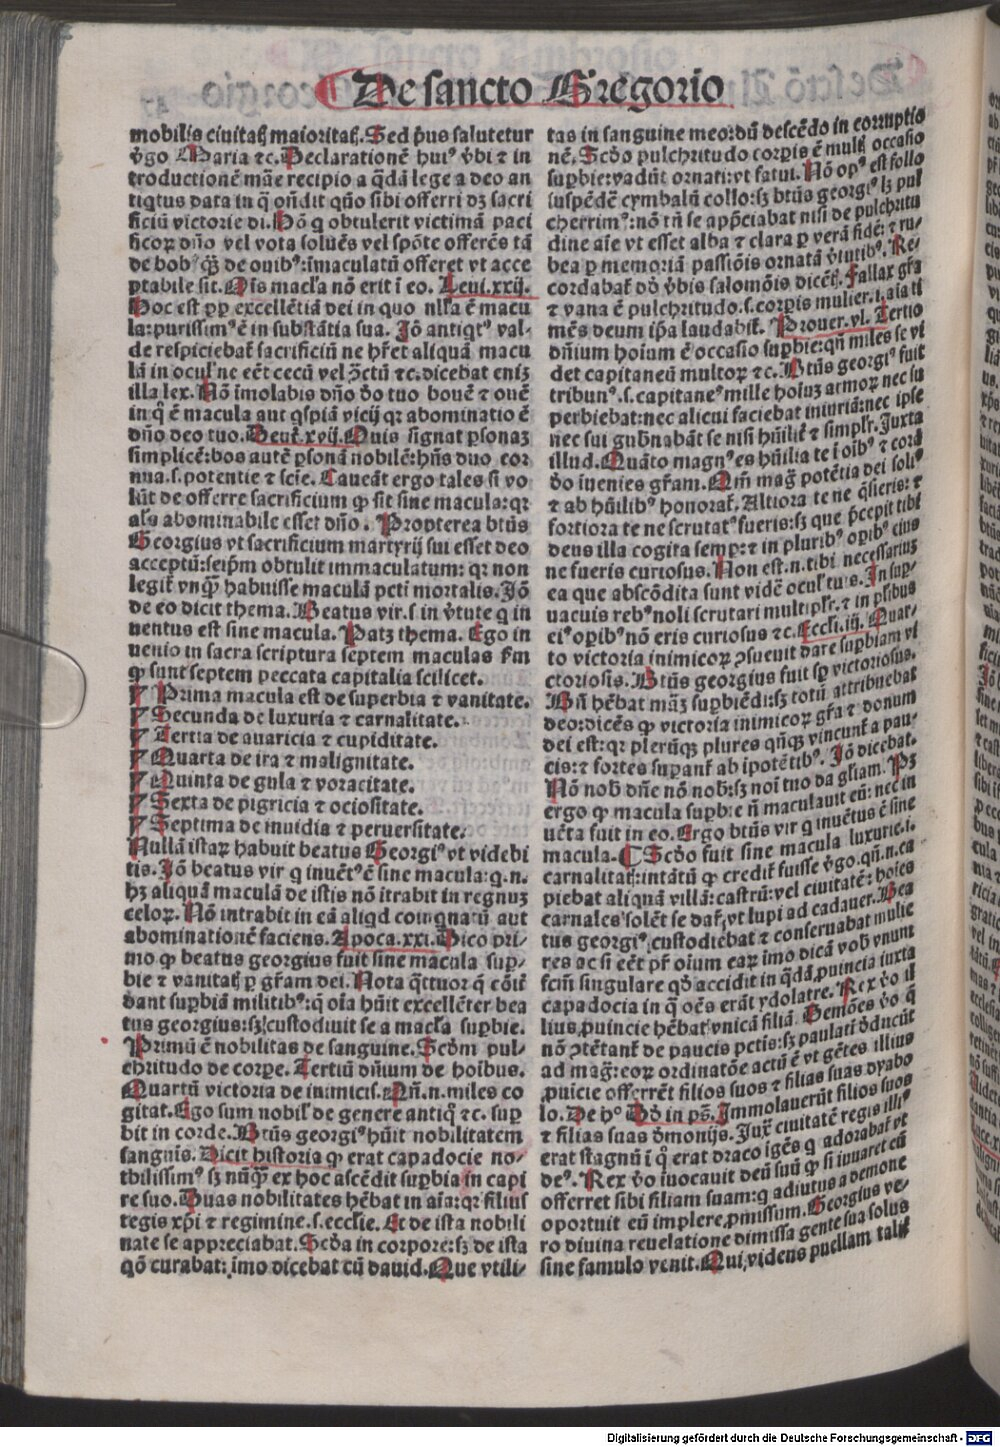 De sancto Gregorio
mobilis ciuitatꝭ maioritatꝭ. Sed p̄us salutetur
v̄go Maria ⁊c. Declarationē huiꝰ v̄bi ⁊ in
troductionē māe recipio a q̄dā lege a deo an
tiqtus data in q̄ oñdit qño sibi offerri dꝫ sacri
ficiū victorie di. Hō q obtulerit victimā paci
ficoꝝ dño vel vota soluēs vel spōte offerēs tā
de bobꝰ qꝫ̄ de ouibꝰ: īmaculatū offeret vt acce
ptabile sit. Oīs macl̄a nō erit ī eo. Leui.xxij.
Hoc est ꝓp excellētiā dei in quo nll̄a ē macu
la: purissimꝰ ē in substātia sua. Jō antiqtꝰ val⸗
de respiciebat̄ sacrificiū ne hr̄et aliquā macu
lā in oculꝭ ne eēt cecū vel ꝯ̄tctū ⁊c. dicebat eniꝫ
illa lex. Nō īmolabis dño d̄o tuo bouē ⁊ ouē
in q̄ ē macula aut qͥspiā vicij qꝛ abominatio ē
dño deo tuo. Deut̄.xvij. Ouis signat ꝑsonaꝫ
simplicē: bos autē ꝑsonā nobilē: hñs duo cor
nua. s. potentie ⁊ scīe. Caueāt ergo tales si vo
lūt de offerre sacrificium ꝙ sit sine macula: qꝛ
al̄s abominabile esset dño. Propterea btūs
Georgius vt sacrificium martyrij sui esset deo
acceptū: seip̄m obtulit immaculatum: qꝛ non
legit̄ vnqꝫ̄ habuisse maculā pctī mortalis. Jō
de eo dicit thema. Beatus vir. s. in v̄tute q in
uentus est sine macula. Patꝫ thema. Ego in
uenio in sacra scriptura septem maculas fm̄
ꝙ sunt septem peccata capitalia scilicet.
¶ Prima macula est de superbia ⁊ vanitate.
¶ Secunda de luxuria ⁊ carnalitate.
¶ Tertia de auaricia ⁊ cupiditate.
¶ Quarta de ira ⁊ malignitate.
¶ Quinta de gula ⁊ voracitate.
¶ Sexta de pigricia ⁊ ociositate.
¶ Septima de inuidia ⁊ peruersitate.
Nullā istaꝝ habuit beatus Georgiꝰ vt videbi
tis. Jō beatus vir q inuētꝰ ē sine macula: q. n.
hꝫ aliquā maculā de istis nō itrabit in regnuꝫ
celoꝝ. Nō intrabit in eā aliqd coinqnatū aut
abominationē faciens. Apoca.xxi. Dico pri⸗
mo ꝙ beatus georgius fuit sine macula suꝑ⸗
bie ⁊ vanitatꝭ ꝑ gr̄am dei. Nota q̄ttuor q̄ cōit̄
dant suꝑbiā militibꝰ: q̄ oīa hūit excellēter bea
tus georgius: sꝫ custodiuit se a macl̄a suꝑbie.
Primū ē nobilitas de sanguine. Scd̄m pul⸗
chritudo de corꝑe. Tertiū dñium de hoībus.
Quartū victoria de inimicis. Qñ. n. miles co
gitat. Ego sum nobilꝭ de genere antiq̄ ⁊c. suꝑ
bit in corde. Btūs georgiꝰ hūit nobilitatem
sanguis. Dicit historia ꝙ erat capadocie no⸗
tbilissimꝰ sꝫ nūqꝫ̄ ex hoc ascēdit suꝑbia in capi
re suo. Duas nobilitates hēbat in aīa: qꝛ filius
regis xp̄i ⁊ regimine. s. eccl̄ie. Et de ista nobili
nate se appreciabat. Scd̄a in corpore: sꝫ de ista
qō curabat: īmo dicebat cū dauid. Que vtili⸗
tas in sanguine meo: dū descēdo in corruptio
nē. Scd̄o pulchritudo corꝑis ē multꝭ occasio
suꝑbie: vadūt ornati: vt fatui. Nō opꝰ est follo
suspēdē cymbalū collo: sꝫ btūs georgiꝰ lꝫ pul
cherrimꝰ: nō tñ se app̄ciabat nisi de pulchritu
dine aīe vt esset alba ⁊ clara ꝑ verā fidē: ⁊ ru⸗
bea ꝑ memoriā passiōis ornatā v̄tutibꝰ. Re⸗
cordabat̄ d̄o v̄bis salomōis dicētꝭ. Fallax gr̄a
⁊ vana ē pulchritudo. s. corꝑis mulier. i. aīa ti
mēs deum ip̄a laudabit̄. Prouer.vl. Tertio
dñium hoīum ē occasio suꝑbie: qñ miles se vi
det capitaneū multoꝝ ⁊c. Btūs georgiꝰ fuit
tribunꝰ. s. capitaneꝰ mille hoīuꝫ armoꝝ nec su
perbiebat: nec alicui faciebat iniuriā: nec ipse
nec sui gubn̄abāt se nisi hūilit̄ ⁊ simplr̄. Juxta
illud. Quāto magnꝰ es hūilia te ī oībꝰ ⁊ corā
d̄o inuenies gr̄am. Qm̄ maḡ potētia dei soliꝰ
⁊ ab hūilibꝰ honorat̄. Altiora te ne q̄sieris: ⁊
fortiora te ne scrutatꝰ fueris: sꝫ que p̄cepit tibi
deus illa cogita semꝑ: ⁊ in pluribꝰ oꝑibꝰ eius
ne fueris curiosus. Non est. n. tibi necessariuꝫ
ea que abscōdita sunt vidē oculꝭ tuis. In suꝑ⸗
uacuis rebꝰ noli scrutari multiplr̄. ⁊ in pl̄ibus
eiꝰ oꝑibꝰ nō eris curiosus ⁊c. Eccli.iij. Quar⸗
to victoria inimicoꝝ ꝯsueuit dare suꝑbiam vi
ctoriosis. Btūs georgius fuit sꝑ victoriosus.
Bñ hēbat māꝫ suꝑbiēdi: sꝫ totū attribuebat
deo: dicēs ꝙ victoria inimicoꝝ gr̄a ⁊ donum
dei est: qꝛ plerūqꝫ plures qñqꝫ vincunt̄ a pau⸗
cis: ⁊ fortes suꝑant̄ ab ipotētibꝰ. Jō dicebat.
Nō nob̄ dñe nō nob̄: sꝫ noī tuo da gl̄iam. Pꝫ
ergo ꝙ macula suꝑbie ñ maculauit eū: nec in
uēta fuit in eo. Ergo btūs vir q inuētus ē sine
macula. ¶ Scd̄o fuit sine macula luxurie. i.
carnalitatꝭ: intātū ꝙ credit̄ fuisse v̄go. qñ. n. ca
piebat aliquā villā: castrū: vel ciuitatē: hoīes
carnales solēt se dar̄, vt lupi ad cadauer. Bea
tus georgiꝰ custodiebat ⁊ conseruabat mulie
res ac si eēt pr̄ oīum eaꝝ īmo dicā vob̄ vnum
fcm̄ singulare qd̄ accidit in q̄dā ꝓuincia iuxta
capadocia in q̄ oēs erāt ydolatre. Rex v̄o il
lius ꝓuincie hēbat vnicā filiā. Demōes v̄o q̄
nō ꝯtētant̄ de paucis pctīs: sꝫ paulati d̄ducūt
ad maḡ: eoꝝ ordinatōe actū ē vt gētes illius
ꝓuīcie offerrēt filios suos ⁊ filias suas dyabo
lo. De hꝰ Dd̄ in ps̄. Immolauerūt filios suos
⁊ filias suas d̄monijs. Jux̄ ciuitatē regis illiꝰ
erat stagnū ī q̄ erat draco īgēs q̄ adorabat̄ vt
deꝰ. Rex v̄o iuocauit deū suū ꝙ si iuuaret eū
offerret sibi filiam suam: q̄ adiutus a demone
oportuit eū implere ꝓmissum. Georgius ve⸗
ro diuina reuelatione dimissa gente sua solus
sine famulo venit. Qui videns puellam talit̄
Digitalisierung gefördert durch die Deutsche Forschungsgemeinschaft - DFG